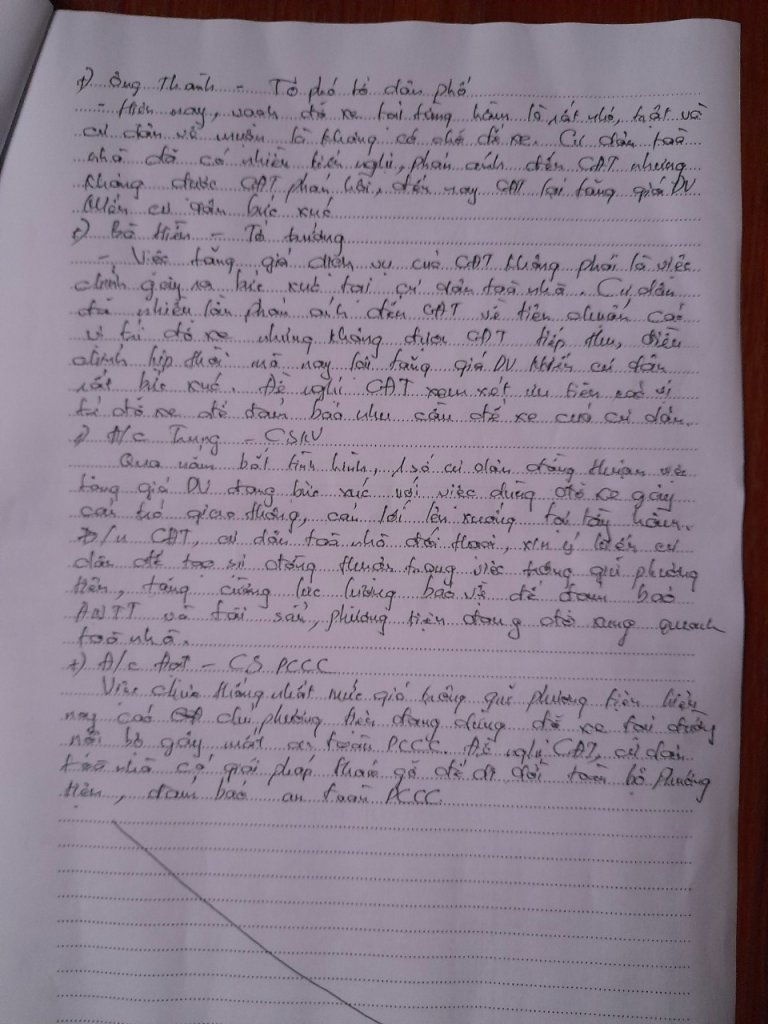 +) Ông Thanh - Tổ phó tổ dân phố
- Hiện nay, vạch đỗ xe tại tầng hầm là rất nhỏ, chật và
cư dân về muộn là không có chỗ để xe. Cư dân toà
nhà đã có nhiều kiến nghị, phản ánh đến CĐT nhưng
không được CĐT phản hồi, đến nay CĐT lại tăng giá DV
khiến cư dân bức xúc
+) Bà Hiền - Tổ trưởng
- Việc tăng giá dịch vụ của CĐT không phải là việc
chính gây ra bức xúc tại cư dân toà nhà. Cư dân
đã nhiều lần phản ánh đến CĐT về tiêu chuẩn các
vị trí đỗ xe nhưng không được CĐT tiếp thu, điều
chỉnh kịp thời mà nay lại tăng giá DV khiến cư dân
rất bức xúc. Đề nghị CĐT xem xét ưu tiên các vị
trí đỗ xe để đảm bảo nhu cầu để xe của cư dân.
+) Đ/c Trung - CSKV
Qua nắm bắt tình hình, 1 số cư dân đồng thuận việc
tăng giá DV đang bức xúc với việc dừng đỗ xe gây
cản trở giao thông, các lối lên xuống tại tầng hầm.
Đ/n CĐT, cư dân toà nhà đối thoại, xin ý kiến cư
dân để tạo sự đồng thuận trong việc trông giữ phương
tiện, tăng cường lực lượng bảo vệ để đảm bảo
ANTT và tài sản, phương tiện đang đỗ xung quanh
toà nhà.
+) Đ/c Đạt - CS PCCC
Việc chưa thống nhất mức giá trông giữ phương tiện hiện
nay các chủ phương tiện đang dừng đỗ xe tại đường
nội bộ gây mất an toàn PCCC. Đề nghị CĐT, cư dân
toà nhà có giải pháp tháo gỡ để di dời toàn bộ phương
tiện, đảm bảo an toàn PCCC.